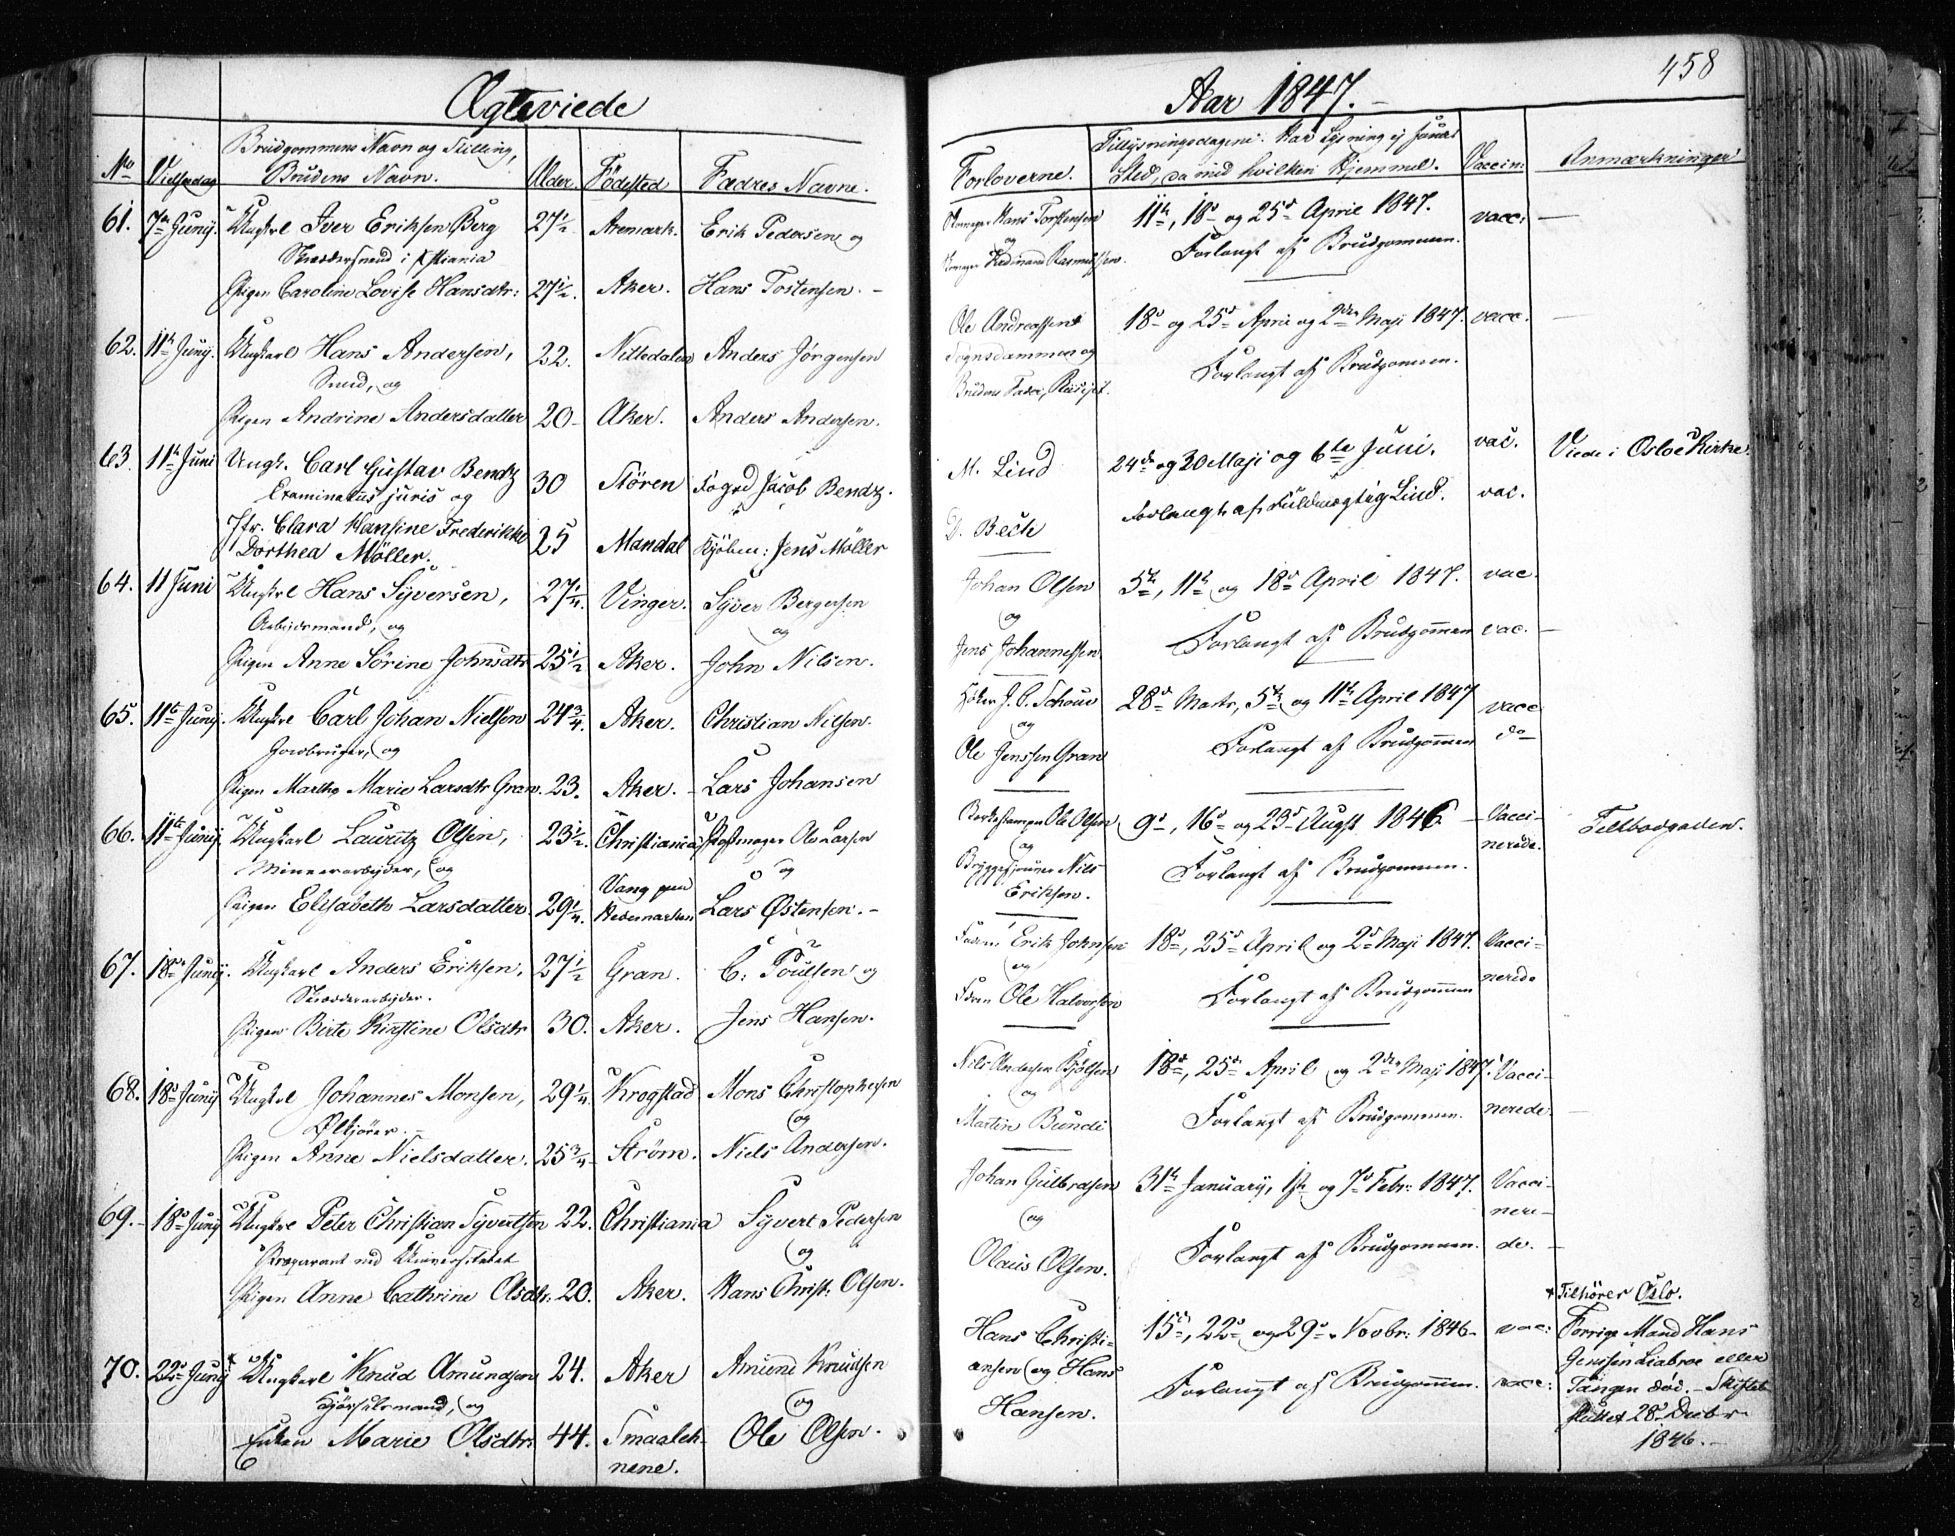 458
Ægteviede
Aar 1847.
No
Vielsesdag
Brudgommens Navn og Stilling,
Brudens Navn.
Alder.
Fødested
Fædres Navne.
Forloverne.
Tillysningsdagene. Har Lysning ej fundet
Sted, da med hvilken Hjemmel.
Vaccin:
Anmærkninger
61. 7de Junij. Ungkrl Iver Eriksen Berg 27½ Aremark. Erik Pedersen og
Skræddersvend i Xstiania
Pigen Caroline Lovise Hansdtr: 27½. Aker. Hans Tostensen.
Hans Torstensen
og
Ferdinand Rasmussen.
11te, 18de og 25de April 1847. vacc:
Forlangt af Brudgommen.
62. 11te Junij. Ungkarl Hans Andersen, 22. Nittedalen Anders Jørgensen
Smed, og
Pigen Andrine Andersdatter 20 Aker. Anders Andersen.
Ole Andreassen
Sognsdammen og
Brudens Fader,
18de og 25de April og 2den Maji 1847. vacc.
Forlangt af Brudgommen.
63. 11te Juni Ungk. Carl Gustav Bendz 30 Stören Foged Jacob Bendz.
Examinatus juris og
Jfr. Clara Hansine Frederikke
Dorthea Möller. 25 Mandal Kjöbm: Jens Möller
M. Lind
D. Bech
24de og 30 Maji og 6te Juni. vac. Viede i Oslo Kirke.
Forlangt af Fuldmægtig Lind. vac.
64. 11 Juni Ungkrl Hans Syversen, 27¼. Vinger. Syver Bergersen
Arbejdsmand, og og
Pigen Anne Sörine Johnsdtr 25½ Aker. John Nilsen.
Johan Olsen
og
Jens Johannessen.
5te, 11te og 18de April 1847. vac.
Forlangt af Brudgommen vac.
65. 11te Junij. Ungkrl Carl Johan Nielsen 24¾. Aker. Christian Nilsen.
Jordbruger, og
Pigen Marthe Marie Larsdtr Gran. 23. Aker. Lars Johansen
J. C. Schou
og
Ole Jenssen Gran
28de Marts, 5te og 11te April 1847 vacc
Forlangt af Brudgommen do
66. 11te Junij. Ungkarl Lauritz Olsen, 23½. Christiania Ole Larsen
Minerarbejder, og og
Pigen Elisabeth Larsdatter. 29¼. Vang paa
Hedemarken Lars Østensen.
Ole Olsen
og
Nils
Eriksen.
9de, 16de og 23de Augst 1846. Vacci-
nerede. Feltbodgaden.
Forlangt af Brudgommen.
67. 18de Junij. Ungkarl Anders Eriksen, 27½ Gran. C: Poulsen og
Skrædderarbejder.
Pigen Birte Kirstine Olsdtr 30. Aker. Jens Hansen.
Erik Johnsen
og
Ole Halvorsen
18de, 25de April og 2den Maji 1847. Vacci-
nerede
Forlangt af Brudgommen
68. 18de Junij Ungkrl Johannes Monsen, 29¼. Krogstad Mons Christophersen
Ølkjører. og
Pigen Anne Nielsdatter. 25¾ Ström. Niels Andersen.
Nils Andersen Kjölsen
og
Martin Bunde
18de, 25de April og 2den Maji 1847. Vacci-
nerede.
Forlangt af Brudgommen.
69. 18de Junij Ungkrl Peter Christian Syvertsen 22. Christiania Syvert Pedersen
Præparant ved Universitetet og
Pigen Anne Cathrine Olsdtr: 20. Aker. Hans Christ: Olsen.
Johan Gulbransen
og
Olaus Olsen.
31te January, 1ste og 7de Febr: 1847. Vacci-
nere-
de.
Forlangt af Brudgommen.
70. 22de Junij * Ungkarl Knud Amundsen 24. Aker Amund Knudsen
Kjörselsmand, og og
Enken Marie Olsdtr: 44. Smaaleh-
nene. Ole Olsen.
Hans Christi-
ansen og Hans
Hansen.
15de, 22de og 29de Novbr: 1846. vac:
Forlangt af Brudgommen. vacc:
* Tilhörer Oslo.
Forrige Mand Hans
Jensen Liabroe eller
Tangen död. Skiftet
sluttet 28de Decbr
1846.